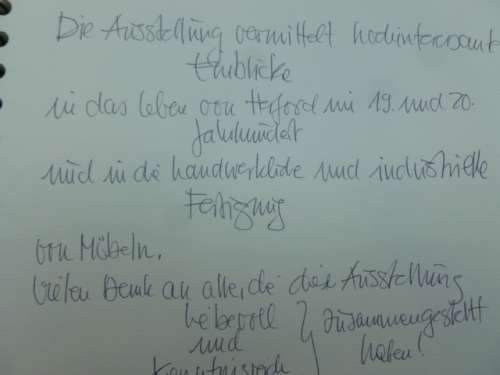 Die Ausstellung vermittelt hochinteressante
Einblicke
in das Leben von Herford im 19. und 20.
Jahrhundert
und in die handwerkliche und industrielle
Fertigung
von Möbeln.
Vielen Dank an alle, die diese Ausstellung
liebevoll
und
kenntnisreich
zusammengestellt
haben!